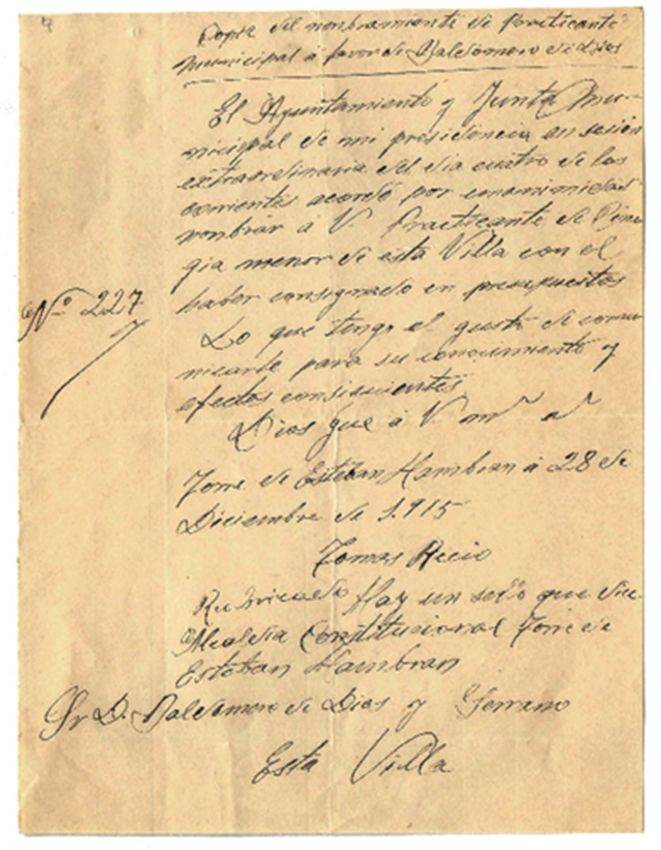 Copia del nonbramiento de Practicante
Municipal á favor de Baldomero de Dios
El Ayuntamiento y Junta Mu-
nicipal de mi presidencia en sesión
extraordinaria del dia cuatro de los
corrientes acordó por unanimidad
nonbrar á V. Practicante de Ciru
gia menor de esta Villa con el
haber consignado en presupuestos
Nº 227
Lo que tengo el gusto de comu
nicarle para su conocimiento y
efectos consiguientes
Dios gue á V mˢ aˢ
Torre de Esteban Hambran á 28 de
Diciembre de 1.915
Tomas Recio
Rubricado Hay un sello que dice
Alcaldia Constitucional Torre de
Esteban Hambran
Sr D. Baldomero de Dios y Serrano
Esta Villa